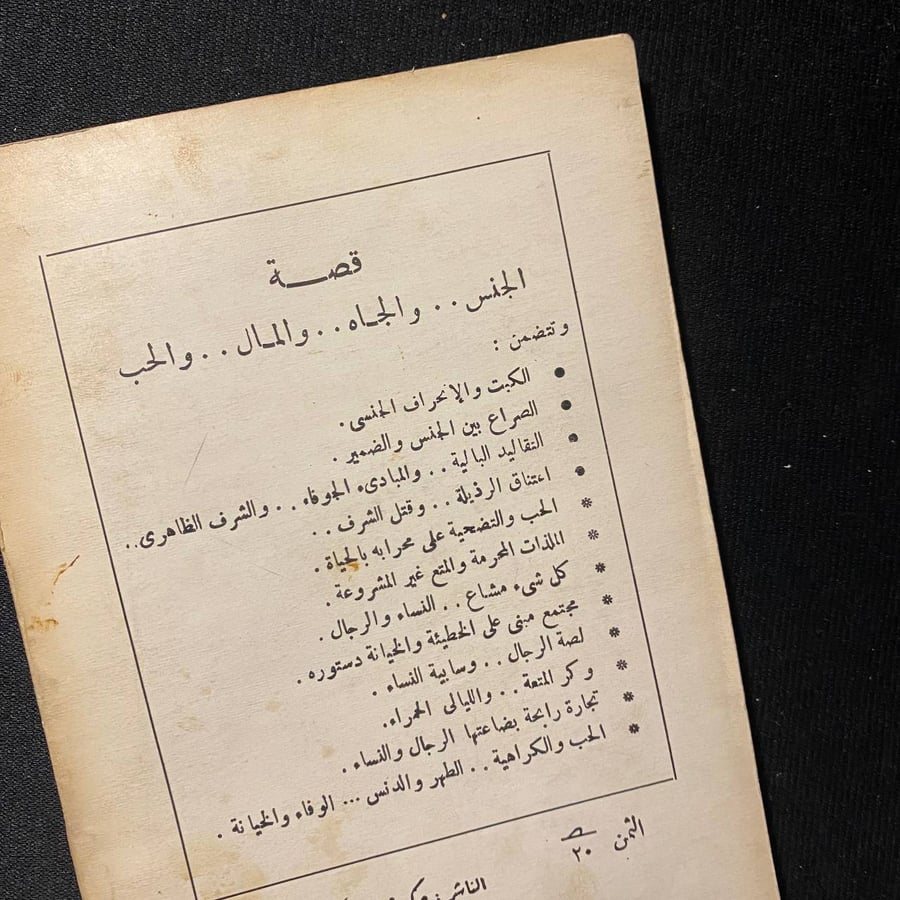 قصة
الجنس . . والجاه . . والمال . . والحب
وتتضمن :
● الكبت والإنحراف الجنسى .
● الصراع بين الجنس والضمير .
● التقاليد البالية . . والمبادىء الجوفاء . . والشرف الظاهرى . .
● اعتناق الرذيلة . . وقتل الشرف . .
* الحب والتضحية على محرابه بالحياة .
* اللذات المحرمة والمتع غير المشروعة .
* كل شىء مشاع . . النساء والرجال .
* مجتمع مبنى على الخطيئة والخيانة دستوره .
* لصة الرجال . . وسابية النساء .
* وكر المتعة . . والليالى الحمراء .
* تجارة رابحة بضاعتها الرجال والنساء .
* الحب والكراهية . . الطهر والدنس ... الوفاء والخيانة .
الثمن ٢٠
الناشر